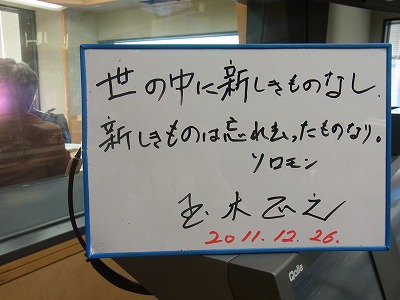 世の中に新しきものなし.
新しきものは忘れ去ったものなり。
ソロモン
玉木正之
2011.12.26.
Qolle